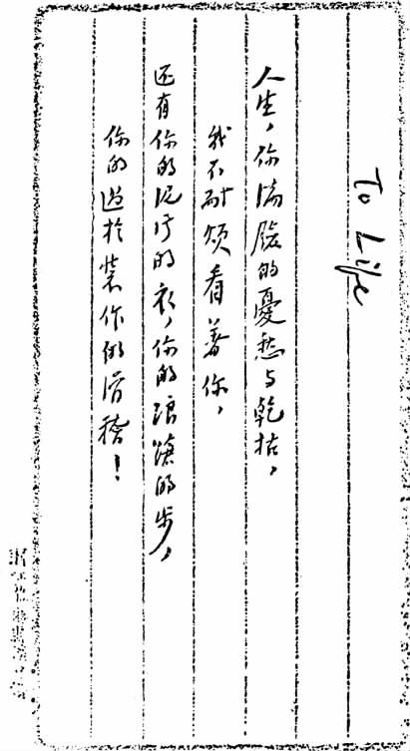 To Life
人生，你满脸的憂愁与乾枯，
我不耐烦看着你，
还有你的泥污的衫，你的踉蹌的步，
你的过於装作的滑稽！